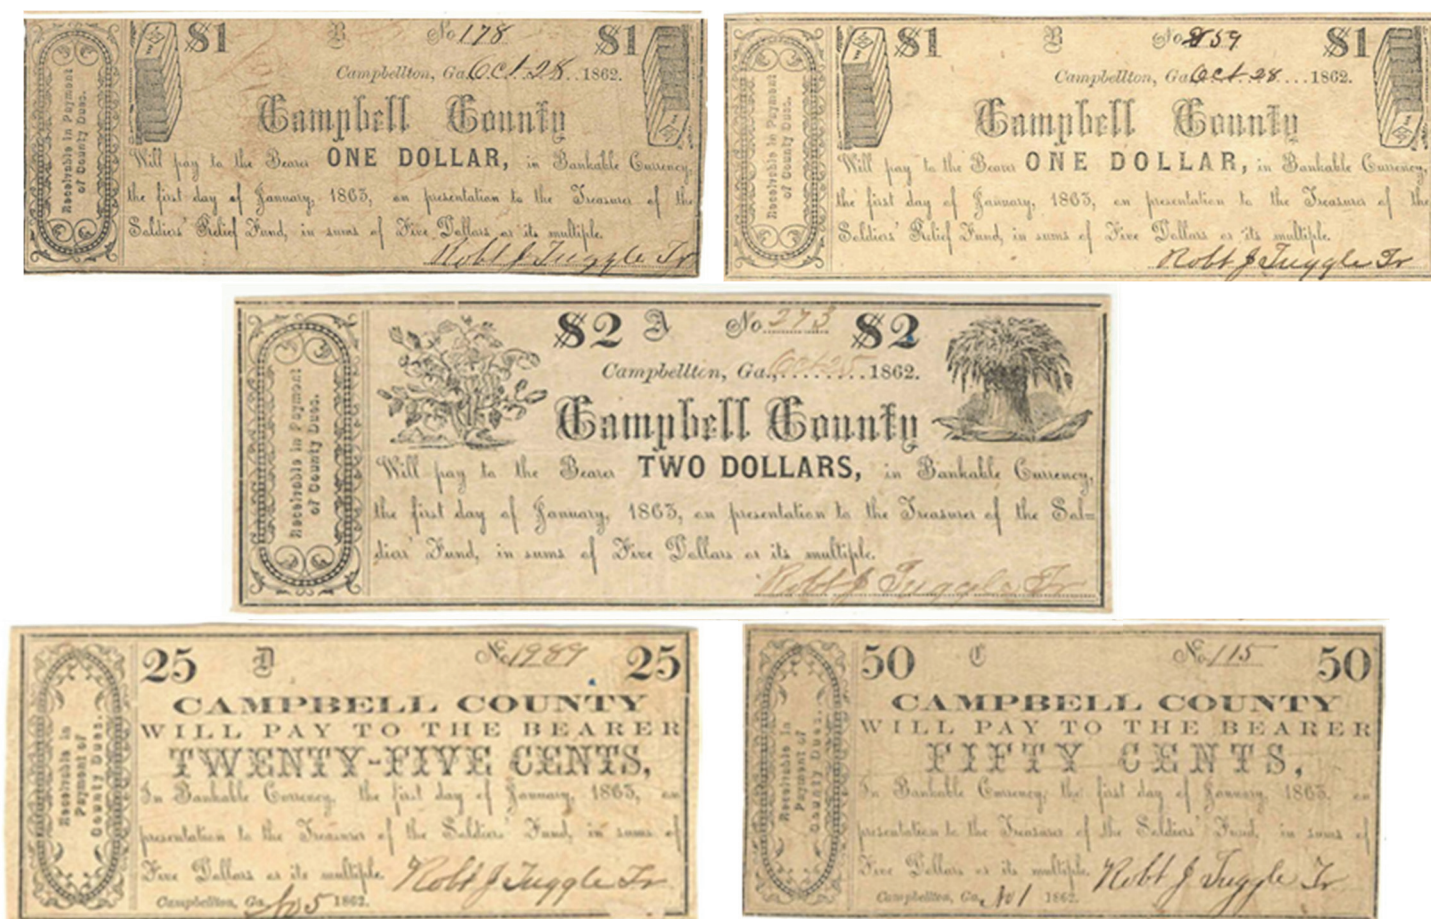 $1 B No 178 $1
Campbellton, Ga. Oct 28 1862.
Receivable in Payment
of County Dues.
Campbell County
Will pay to the Bearer ONE DOLLAR, in Bankable Currency,
the first day of January, 1863, on presentation to the Treasurer of the
Soldiers' Relief Fund, in sums of Five Dollars or its multiple.
Robt J Tuggle Tr
$1 B No 59 $1
Campbellton, Ga Oct 28 1862.
Receivable in Payment
of County Dues.
Campbell County
Will pay to the Bearer ONE DOLLAR, in Bankable Currency,
the first day of January, 1863, on presentation to the Treasurer of the
Soldiers' Relief Fund, in sums of Five Dollars or its multiple.
Robt J Tuggle Tr
$2 A No 273 $2
Campbellton, Ga., Oct 25 1862.
Receivable in Payment
of County Dues.
Campbell County
Will pay to the Bearer TWO DOLLARS, in Bankable Currency,
the first day of January, 1863, on presentation to the Treasurer of the Sol=
diers' Fund, in sums of Five Dollars or its multiple.
Robt J Tuggle Tr
25 D No 1989 25
Receivable in
Payment of
County Dues.
CAMPBELL COUNTY
WILL PAY TO THE BEARER
TWENTY-FIVE CENTS,
In Bankable Currency, the first day of January, 1863, on
presentation to the Treasurer of the Soldiers' Fund, in sums of
Five Dollars or its multiple.
Robt J Tuggle Tr
Campbellton, Ga. 5 1862.
50 C No 115 50
Receivable in
Payment of
County Dues.
CAMPBELL COUNTY
WILL PAY TO THE BEARER
FIFTY CENTS,
In Bankable Currency, the first day of January, 1863, on
presentation to the Treasurer of the Soldiers' Fund, in sums of
Five Dollars or its multiple.
Robt J Tuggle Tr
Campbellton, Ga. 1 1862.